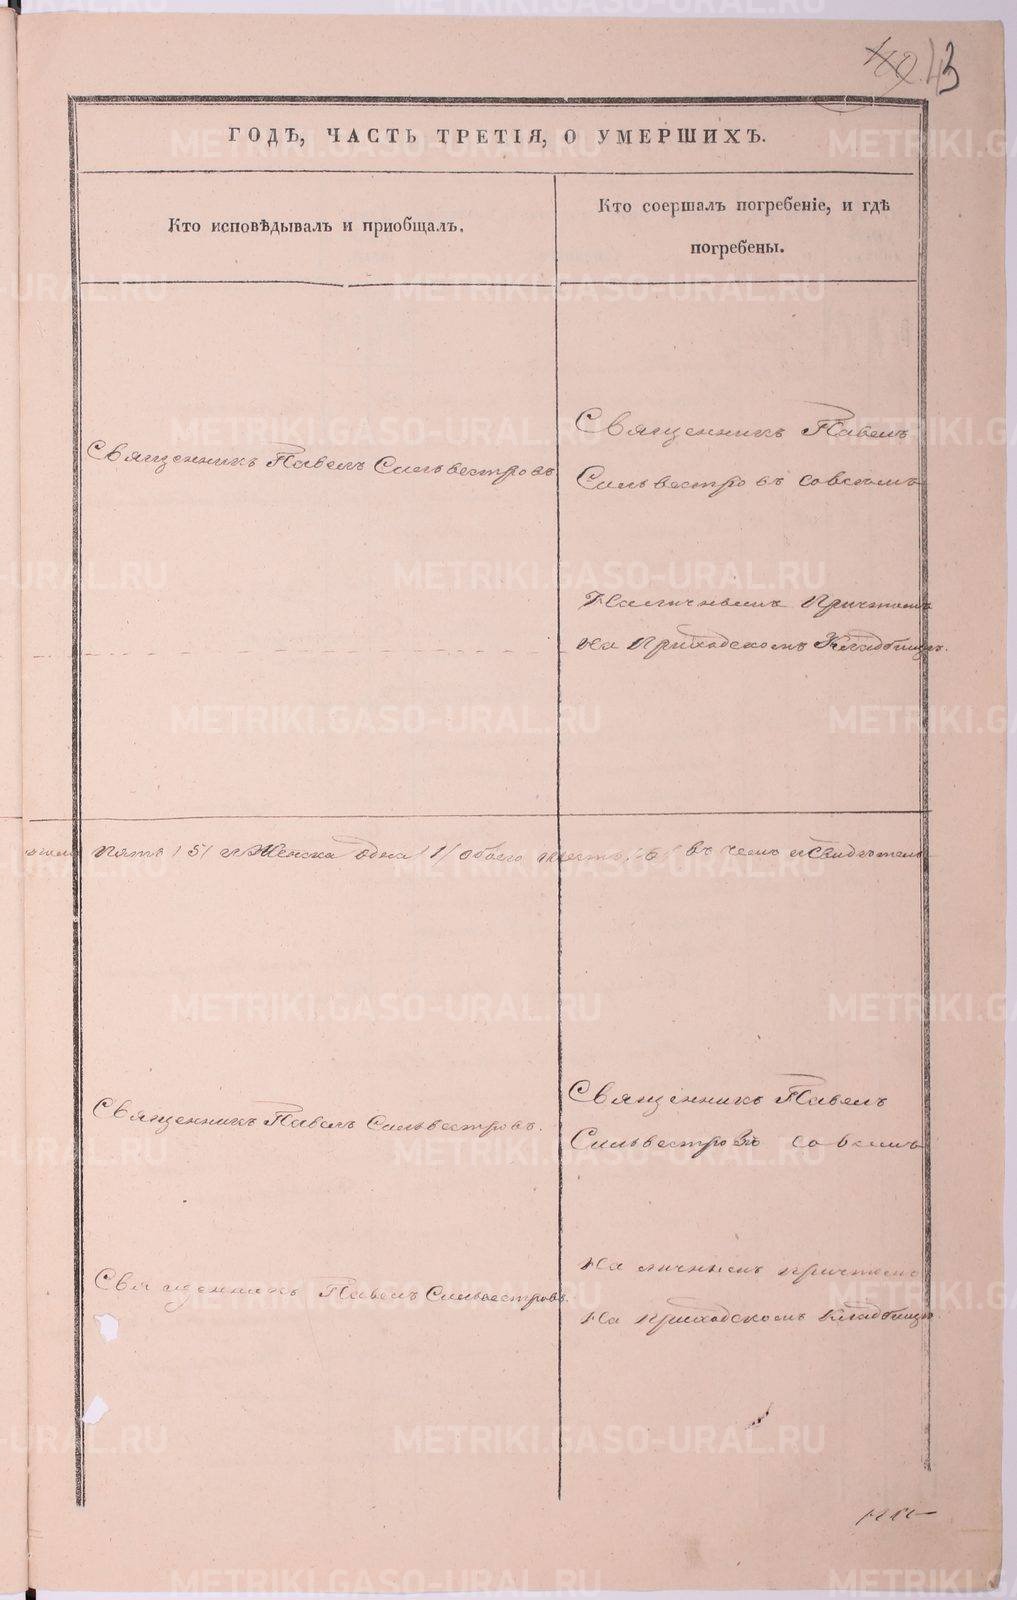 43
ГОДѢ, ЧАСТЬ ТРЕТІЯ, О УМЕРШИХЪ.
Кто исповѣдывалъ и приобщалъ.
Кто соершалъ погребеніе, и гдѣ
погребены.
Священникъ Павелъ Сильвестровъ
Священникъ Павелъ
Сильвестровъ совсѣмъ
Наличнымъ Причтомъ
На Приходскомъ Кладбищѣ.
пять /5/ и Женска одна /1/ обоего /6/ въ чемъ и Свидѣтель
Священникъ Павелъ Сильвестровъ.
Священникъ Павелъ
Сильвестровъ совсемъ
Священникъ Павелъ Сильвестровъ.
На личнымъ причтомъ
На приходскомъ кладбищѣ.
METRIKI.GASO-URAL.RU